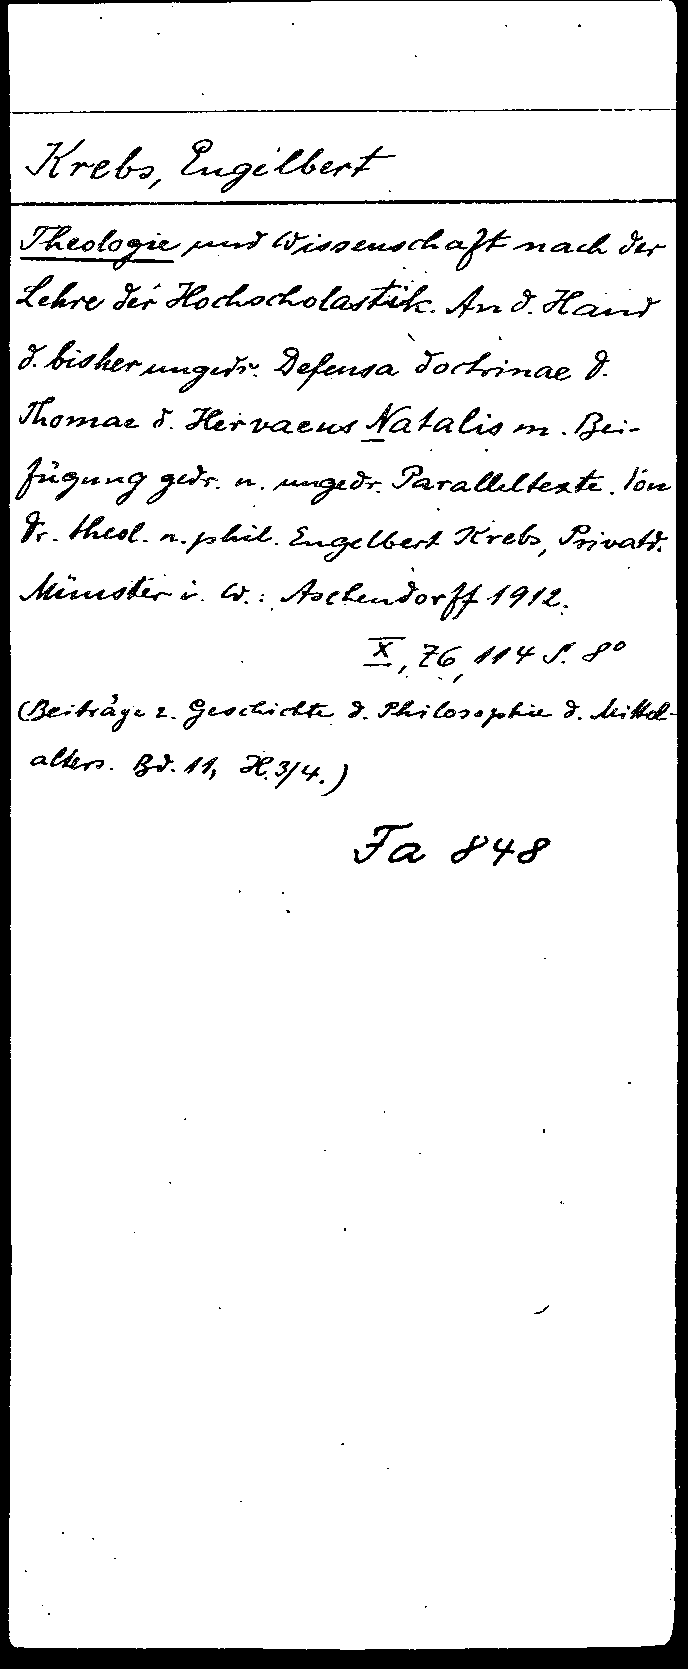 Krebs, Engilbert
Theologie und Wissenschaft nach der
Lehre der Hochscholastik. An d. Hand
d. bisher ungedr. Defensa doctrinae d.
Thomae d. Hervaeus Natalis m. Bei-
fügung gedr. u. ungedr. Paralleltexte. Von
Dr. theol. u. phil. Engelbert Krebs, Privatd.
Münster i. W.: Aschendorff 1912.
X, 76, 114 S. 8°
(Beiträge z. Geschichte d. Philosophie d. Mittel-
alters. Bd. 11, H. 3/4.)
Fa 848